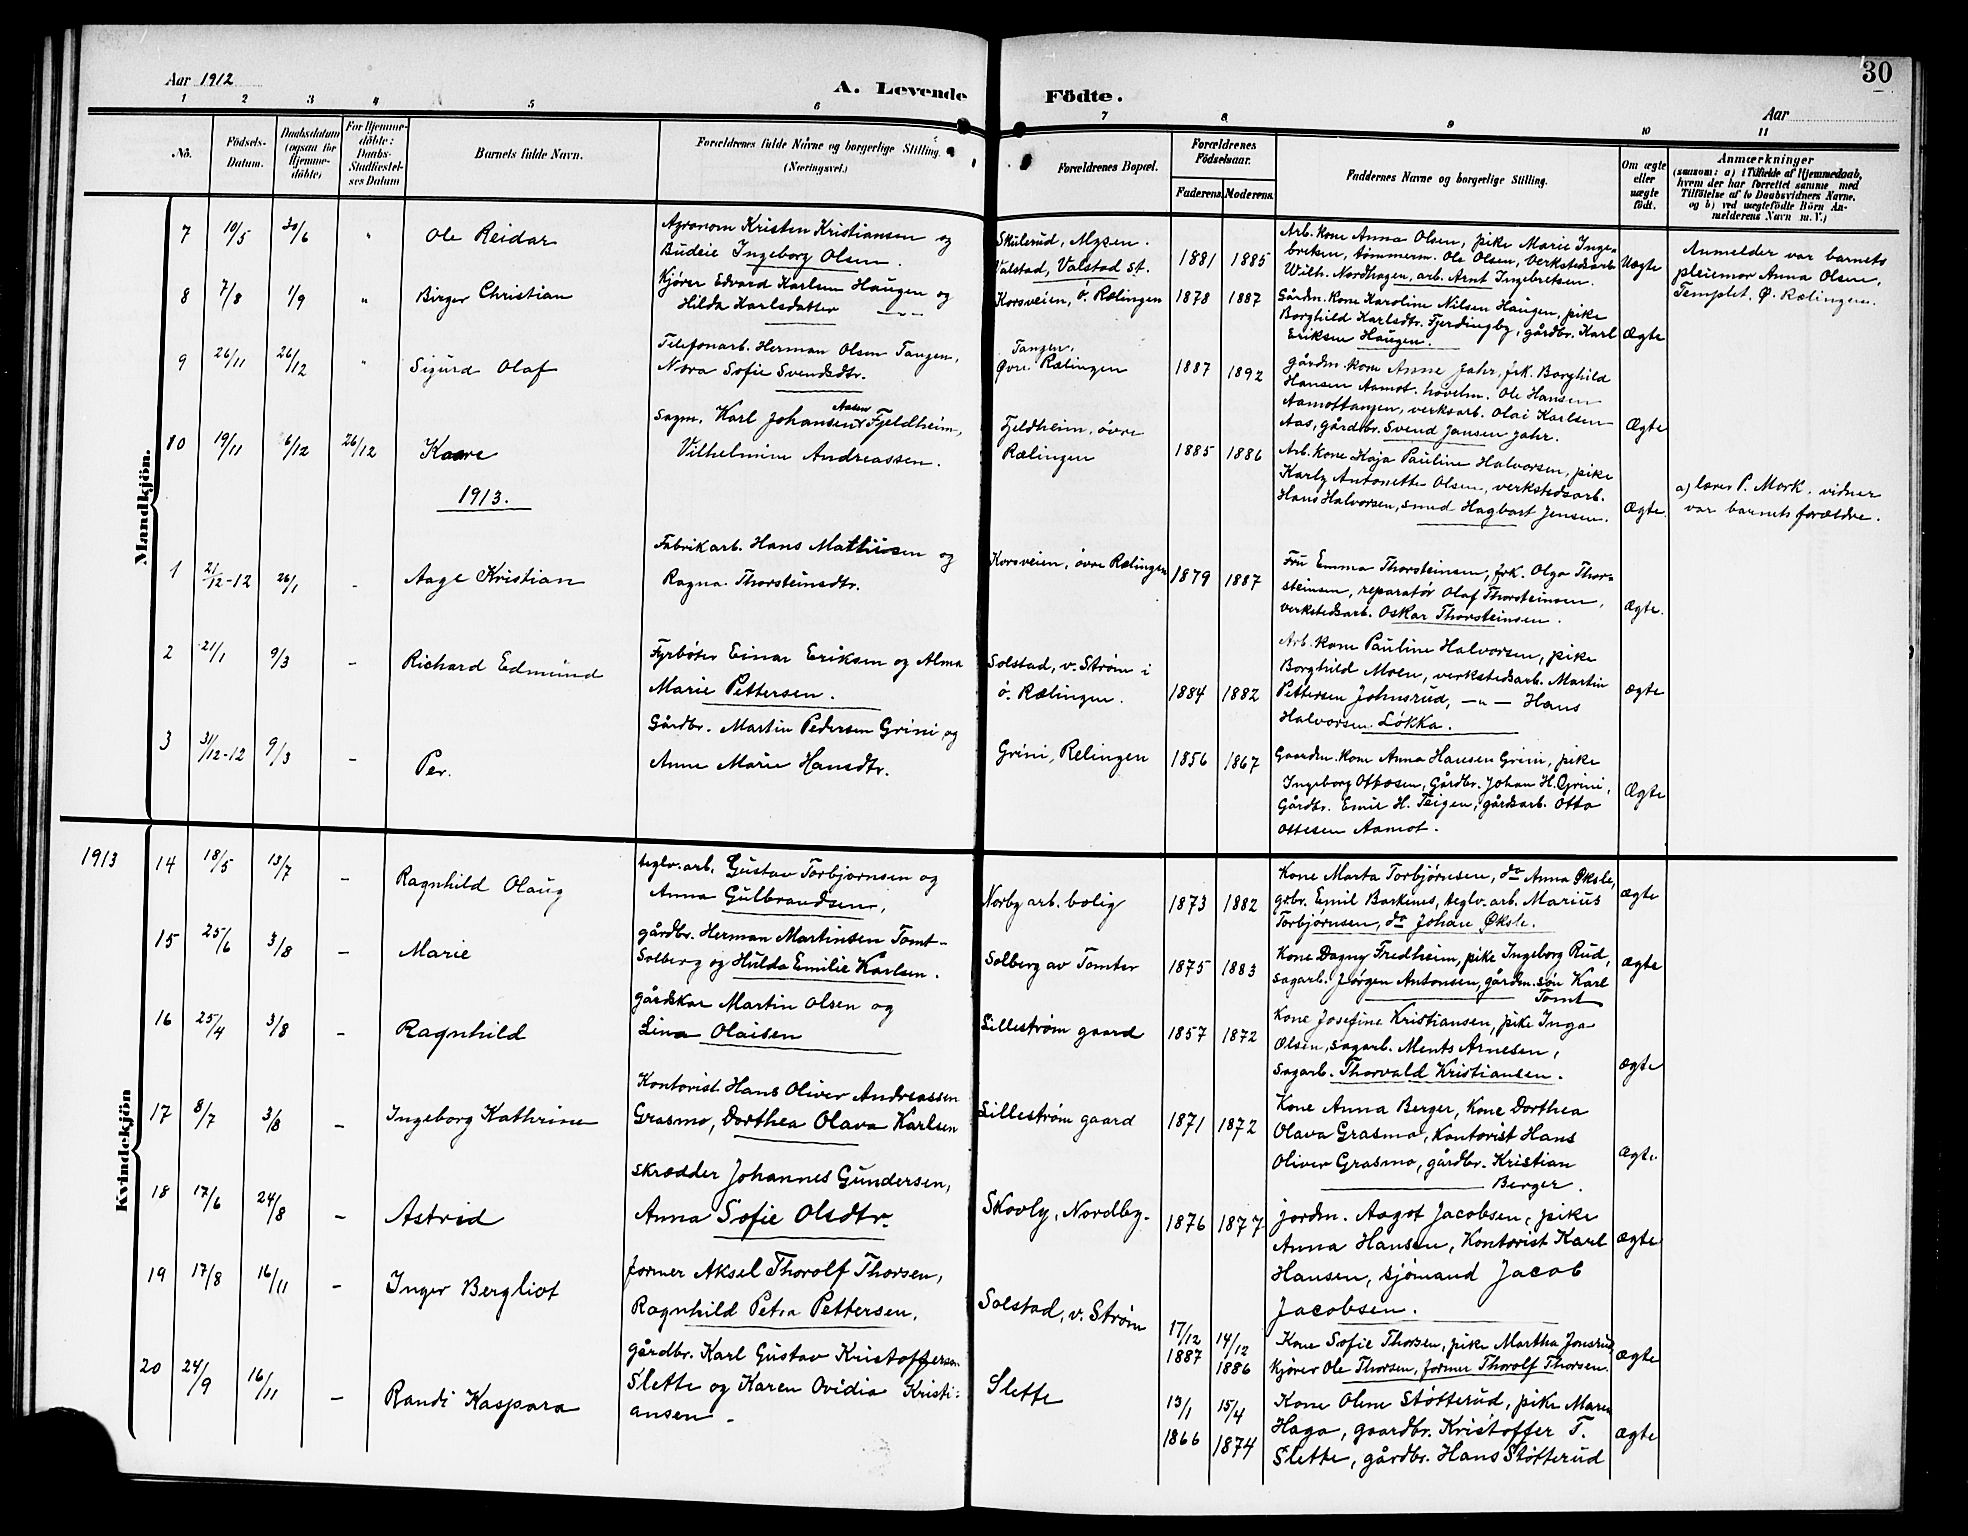 30
Aar 1912
A. Levende Födte.
Aar
1 2 3 4 5 6 7 8 9 10 11
No.
Födsels-Datum.
Daabsdatum (ogsaa for Hjemme-döbte)
For Hjemme-döbte: Daabs-Stadfæstel-ses Datum
Barnets fulde Navn.
Forældrenes fulde Navne og borgerlige Stilling.
(Næringsvei.)
Forældrenes Bopæl.
Forældrenes Födselsaar.
Faderens.
Moderens.
Faddernes Navne og borgerlige Stilling.
Om ægte eller uægte födt.
Anmærkninger
(saasom: a) i Tilfælde af Hjemmedaab,
hvem der har forrettet samme med
Tilföielse af to Daabsvidners Navne.
og b) ved uægtefödte Börn An-
melderens Navn m. V.)
Mandkjön.
7 10/5 30/6 " Ole Reidar
Agronom Kristen Kristiansen og
Budeie Ingeborg Olsen.
Skulerud, Mysen.
Valstad, Valstad st.
1881 1885
Arb. kone Anna Olsen, pike Marie Inge-
bretsen, tømmerm. Ole Olsen, verkstedsarb.
Wilh. Nordhagen, arb. Arnt Ingebretsen.
Uægte
Anmelder var barnets
pleiemor Anna Olsen,
Templet. Ø. Rælingen.
8 7/8 1/9 " Birger Christian
Kjører Edvard Karlsen Haugen og
Hilda Karlsdatter
Korsveien, ö. Rælingen
1878 1887
Gårdm. kone Karoline Nilsen Haugen, pike
Borghild Karlsdtr. Fjerdingby, gårdbr. Karl
Eriksen Haugen.
Ægte
9 26/11 26/12 " Sigurd Olaf
Telefonarb. Herman Olsen Tangen,
Nora Sofie Svendsdtr.
Tangen,
Øvre Rælingen
1887 1892
Gårdm. kone Anne Jahr, frk. Borghild
Hansen Aamot, høvelm. Ole Hansen
Aamottangen, verksarb. Olai Karlsen
Aas, gårdbr. Svend Jansen Jahr.
Ægte
10 19/11 6/12 26/12 Kaare
Sagm. Karl Johansen Aasen Fjeldheim,
Vilhelmine Andreassen.
Fjeldheim, övre
Rælingen
1885 1886
Arb. kone Kaja Pauline Halvorsen, pike
Karly Antonette Olsen, verkstedsarb.
Hans Halvorsen, smed Hagbart Jensen.
Ægte
a) lærer P. Mork. vidner
var barnets forældre.
1913.
1 21/12-12 26/1 - Aage Kristian
Fabrikarb. Hans Mathisen og
Ragna Thorsteinsdtr.
Korsveien, övre Rælingen
1879 1887
Fru Emma Thorsteinsen, frk. Olga Thor-
steinsen, reparatør Olaf Thorsteinsen,
verkstedsarb. Oskar Thorsteinsen.
Ægte.
2 21/1 9/3 - Richard Edmund
Fyrböter Einar Eriksen og Alma
Marie Pettersen.
Solstad, v. Strøm i
ö. Rælingen.
1884 1882
Arb. kone Pauline Halvorsen, pike
Borghild Moen, verkstedsarb. Martin
Pettersen Johnsrud, -"- Hans
Halvorsen Løkka.
ægte
3 31/12-12 9/3 - Per.
Gårdbr. Martin Pedersen Grini og
Anne Marie Hansdtr.
Grini, Relingen
1856 1867
Gaardm. kone Anna Hansen Grini, pike
Ingeborg Ottosen, Gårdbr. Johan H. Grini,
Gårdbr. Emil H. Teigen, gårdsarb. Otto
Ottesen Aamot.
Ægte
Kvindekjön
1913
14 18/5 13/7 - Ragnhild Olaug
teglv. arb. Gustav Torbjørnsen og
Anna Gulbrandsen,
Norby arb. bolig
1873 1882
Kone Marta Torbjørnsen, do Anna Øksle,
grbr. Emil Barkenes, teglv. arb. Marius
Torbjørnsen, do Johan Øksle.
ægte
15 25/6 3/8 - Marie
gårdbr. Herman Martinsen Tomt-
Solberg og Hulda Emilie Karlsen.
Solberg av Tomter
1875 1883
Kone Dagny Fredheim, pike Ingeborg Rud,
sagarb. Jørgen Antonsen, gårdm. søn Karl
Tomt
ægte
16 25/4 3/8 - Ragnhild
gårdskar Martin Olsen og
Lina Olaisen
Lillestrøm gaard
1857 1872
Kone Josefine Kristiansen, pike Inga
Olsen, sagarb. Ments Arnesen,
sagarb. Thorvald Kristiansen.
ægte
17 8/7 3/8 - Ingeborg Kathrine
Kontorist Hans Oliver Andreassen
Grasmo, Dorthea Olava Karlsen
Lillestrøm gaard
1871 1872
Kone Anna Berger, Kone Dorthea
Olava Grasmo, Kontorist Hans
Oliver Grasmo, gårdbr. Kristian
Berger.
Ægte.
18 17/6 24/8 - Astrid
skrædder Johannes Gundersen,
Anna Sofie Olsdtr.
Skovly, Nordby.
1876 1877
jordm. Aagot Jacobsen, pike
Anna Hansen, Kontorist Karl
Hansen, sjömand Jacob
Jacobsen.
ægte
19 17/8 16/11 - Inger Bergliot
former Aksel Thorolf Thorsen,
Ragnhild Petra Pettersen,
Solstad, v. Strøm
17/12 1887 14/12 1886
Kone Sofie Thorsen, pike Martha Jonsrud
kjører Ole Thorsen, former Thorolf Thorsen.
ægte
20 24/9 16/11 - Randi Kaspara
gårdbr. Karl Gustav Kristoffersen
Slette og Karen Ovidia Kristi-
ansen -
Slette
13/1 1866 15/4 1874
Kone Oline Støtterud, pike Maren
Haga, gaardbr. Kristoffer T.
Slette, gårdbr. Hans Støtterud
ægte